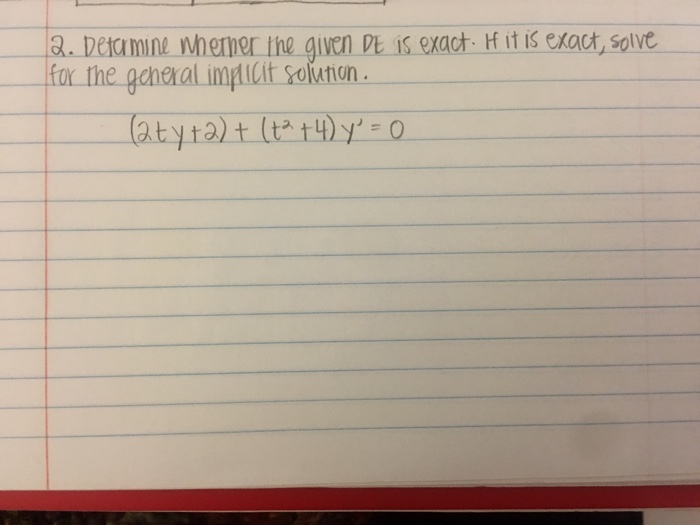 2. Determine whether the given DE is exact. If it is exact, solve
for the general implicit solution.
(2ty+2) + (t²+4) y' = 0